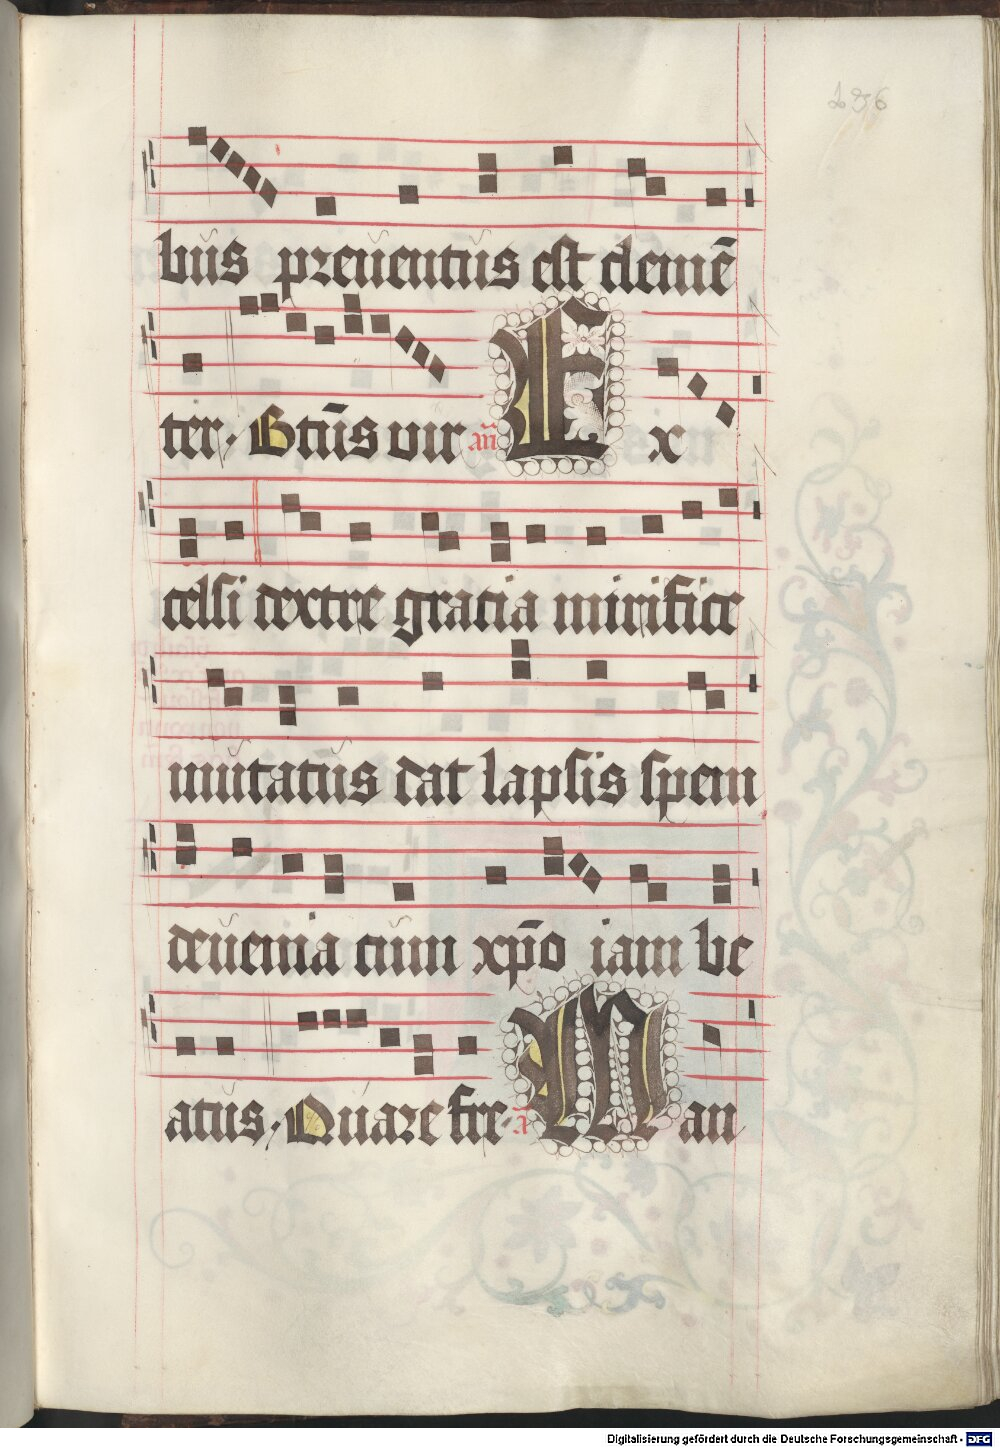 236
bus preuentus est clemē
ter. Btūs vir añ Ex
celsi dextre gracia mirifice
mutatus dat lapsis spem
de uenia cum xp̄o iam be
atus. Quare fre. a Man
Digitalisierung gefördert durch die Deutsche Forschungsgemeinschaft - DFG